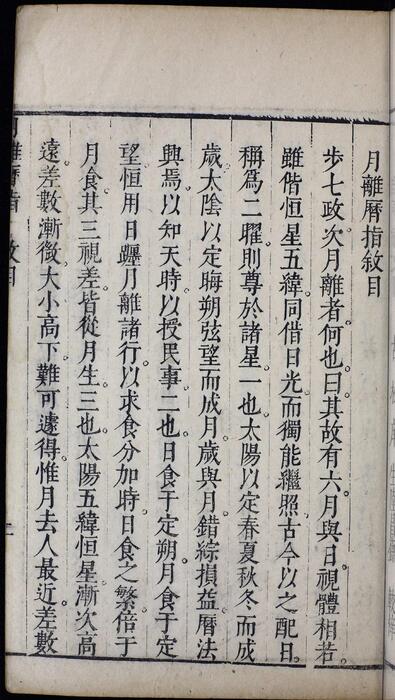 月離曆指敘目
步七政次月離者何也曰其故有六月與日視體相若
雖偕恒星五緯同借日光而獨能繼照古今以之配日
稱爲二曜則尊於諸星一也太陽以定春夏秋冬而成
歲太陰以定晦朔弦望而成月歲與月錯綜損益曆法
興焉以知天時以授民事二也日食于定朔月食于定
望恒用日躔月離諸行以求食分加時日食之繁倍于
月食其三視差皆從月生三也太陽五緯恒星漸次高
遠差數漸微大小高下難可遽得惟月去人最近差數
月離曆指 敘目